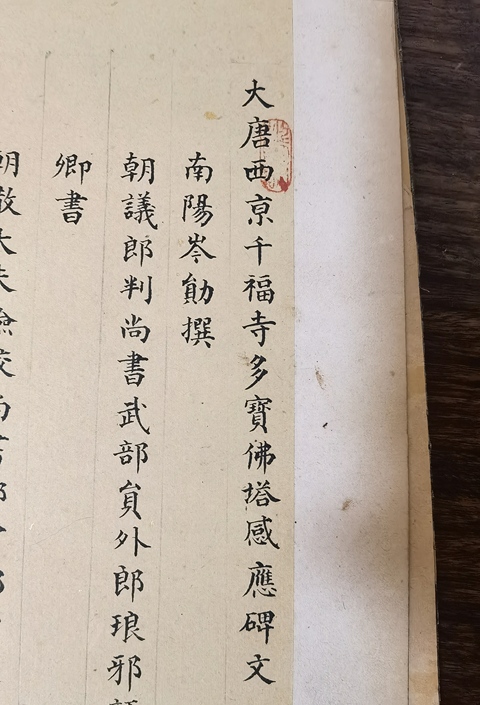 大唐西京千福寺多寶佛塔感應碑文
南陽岑勛撰
朝議郎判尚書武部員外郎琅邪
卿書
朝散大夫檢校尚書都